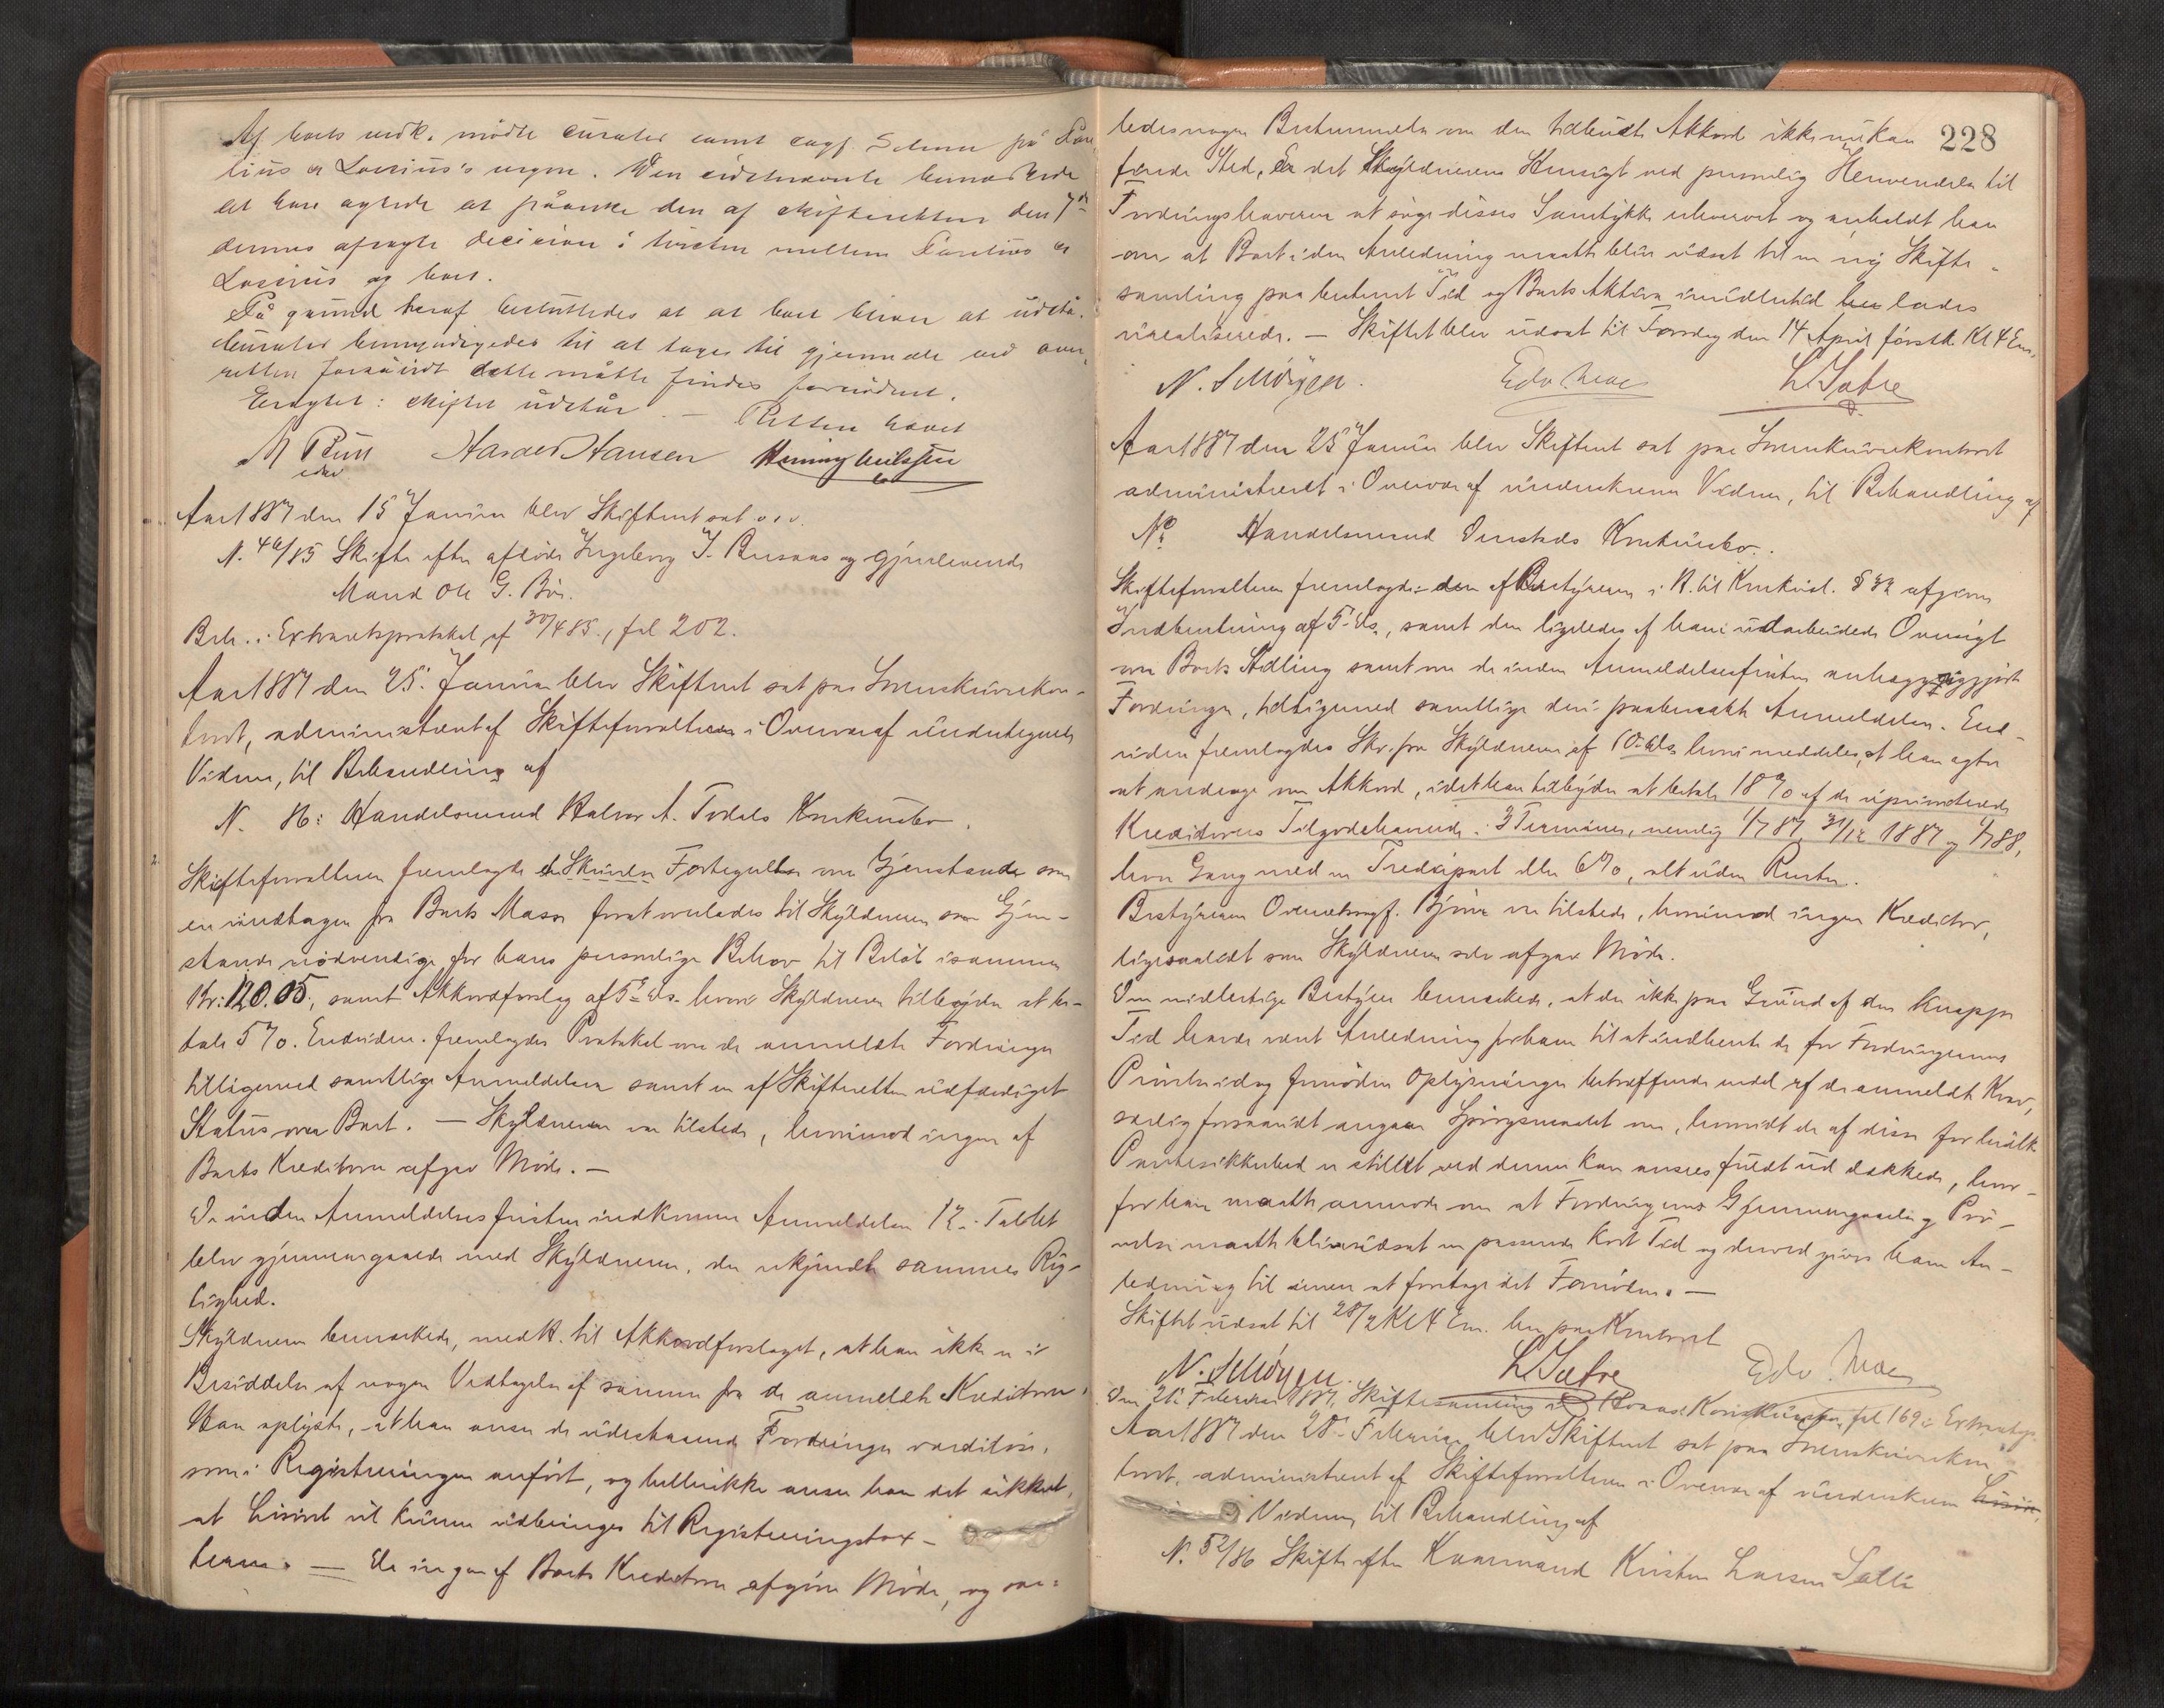 Af boets vedk. mødte curator samt sagf. Selmer på
lius & Lossius's vegne. Den sidstnævnte bemærkede
at han agtede at påanke den af skifteretten den 7de
dennes afsagte decision i tvisten mellem &
Lossius og boet.
På grund heraf besluttedes at at boet bliver at udstå.
Curator bemyndigedes til at tage til gjenmæle ved over
retten forsåvidt dette måtte findes fornødent.
Eragtet: skiftet udstår. — Retten hævet
Harald Hansen Henning
Aar 1887 den 15 Januar blev Skifteret sat o.s.v.
N. 46/85 Skifte efter afdøde Ingeborg J. og gjenlevende
Mand Ole G. Bøe.
Beh. i Extraretsprotokol af 30/4 85, fol 202.
Aar 1887 den 25. Januar blev Skifteret sat paa Sorenskriverkon-
toret, administreret af Skifteforvalteren i Overvær af undertegnede
Vidner, til Behandling af
N. 86: Handelsmand Halvor A. Tvdals Konkursbo.
Skifteforvalteren fremlagde Skyldn Fortegnelse over Gjenstande som
er undtagen fra Boets Masse forat overlades til Skyldneren som Gjen-
stande nødvendige for hans personlige Behov til Beløb isammen
Kr: 120.05, samt Akkordforslag af 5te ds. hvori Skyldneren tilbyder at be-
tale 5 %. Endvidere fremlagdes Protokol over de anmeldte Fordringer
tilligemed samtlige Anmeldelser samt en af Skifteretten udfærdiget
Status over Boet. — Skyldneren var tilstede, hvorimod ingen af
Boets Kreditorer afgav Møde. —
De inden Anmeldelsesfristen indkomne Anmeldelser 12. Tallet
blev gjennemgaaede med Skyldneren, der erkjendte sammes Rig-
tighed.
Skyldneren bemærkede, med H. til Akkordforslaget, at han ikke er i
Besiddelse af nogen Vedtagelse af samme fra de anmeldte Kreditorer.
Han oplyste, at han anser de udestaaende Fordringer værdiløse,
som i Registreringen anført, og hellerikke anser han det sikkert,
at Løsøret vil kunne udbringes til Registreringstax-
terne. — Da ingen af Boets Kreditorer afgiver Møde, og saa-
228
ledes nogen Bestemmelse om den tilbudte Akkord ikke nu kan
finde Sted, er det Skyldnerens Hensigt ved personlig Henvendelse til
Fordringshaverne at søge disses Samtykke erhvervet og anholdt han
om at Boet i den Anledning maatte blive udsat til en ny Skifte-
samling paa bestemt Tid og Boets Aktiva imidlertid lades
urealiserede. — Skiftet blev udsat til Torsdag den 14 April førstk. Kl 4 Em.
N. Edv. Moe L. Sætre
Aar 1887 den 25 Januar blev Skifteret sat paa Sorenskriverkontoret
administreret i Overvær af underskrevne Vidner, til Behandling af
No Handelsmand Konkursbo.
Skifteforvalteren fremlagde: den af Bestyreren i H. til Konkursl. § 32 afgivne
Indberetning af 5te ds., samt den ligeledes af ham udarbeidede Oversigt
over Boets Stilling samt over de inden Anmeldelsesfristen
Fordringer, tilligemed samtlige deri paaberaabte Anmeldelser. End-
videre fremlagdes Skr. fra Skyldneren af 10de ds. hvori meddeles, at han agter
at andrage om Akkord, idet han tilbyder at betale 18 % af de uprioriterede
Kreditorers Tilgodehavende i 3 Terminer, nemlig 1/7 87, 31/12 1887 og 1/7 88,
hver Gang med en Trediepart eller 6 %, alt uden Renter.
Bestyreren Overretssagf. var tilstede, hvorimod ingen Kreditor,
ligesaalidt som Skyldneren selv afgav Møde.
Den midlertidige Bestyrer bemærkede, at der ikke paa Grund af den knappe
Tid havde været Anledning for ham til at indhente de for Fordringernes
Prøvelse idag fornødne Oplysninger betræffende endel af de anmeldte Krav,
særlig forsaavidt angaar Spørgsmaalet om, hvorvidt de af disse for hvilke
Pantesikkerhed er stillet ved denne kan ansees fuldt ud dækkede, hvor-
for han maatte anmode om at Fordringernes Gjennemgaaelse og Prø-
velse maatte blive udsat en passende kort Tid og derved gives ham An-
ledning til imens at foretage det Fornødne. —
Skiftet udsat til 28/2 Kl 4 Em. her paa Kontoret
N. L. Sætre Edv. Moe
Den 21 Februar 1887, Skiftesamling i Konkursbo, fol 169 i Extraretspr.
Aar 1887 den 28. Februar blev Skifteret sat paa Sorenskriverkon-
toret, administreret af Skifteforvalteren i Overvær af underskrevne
Vidner, til Behandling af
N. 52/86 Skifte efter Kaarmand Kristen Larsen